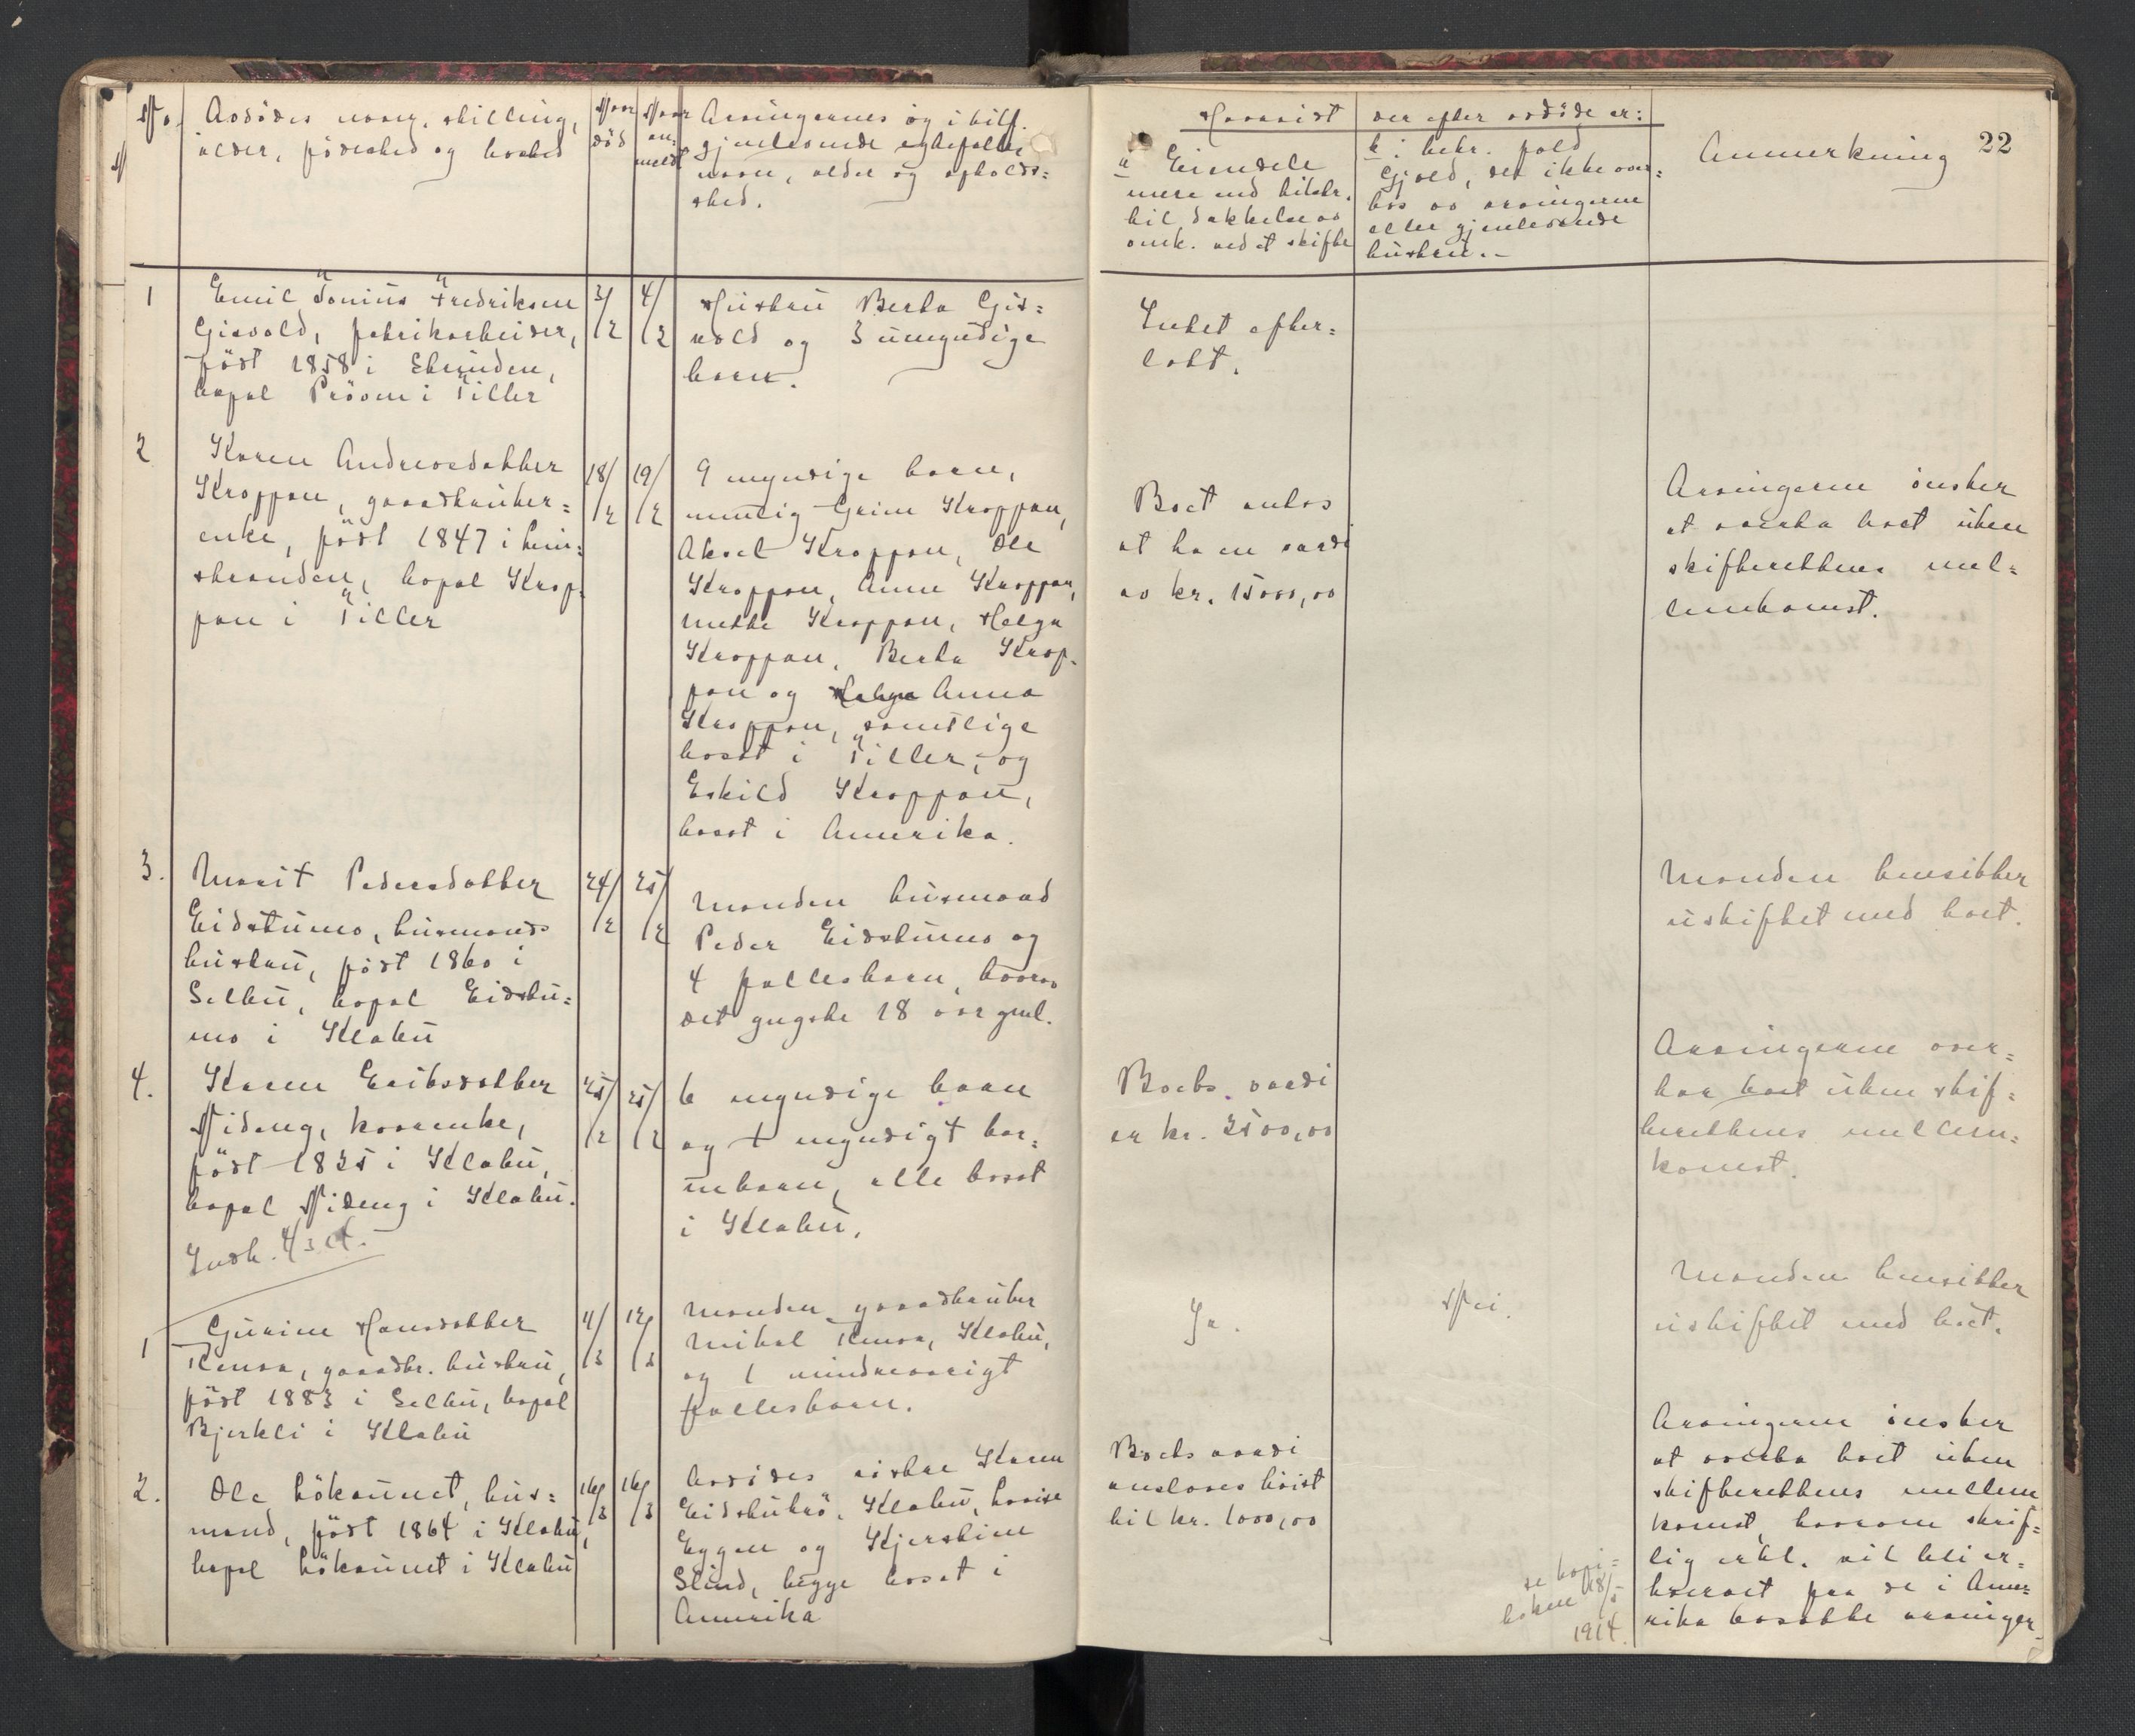 No.
Avdödes navn, stilling,
alder, födested og bosted
Naar
död
Naar
an-
meldt
Arvingernes og i tilf.
gjenlevende egtefælles
navn, alder og opholds=
sted.
Hvorvidt der efter avdöde er:
a Eiendele
mere end tilstr.
til dækkelse av
omk. ved et skifte
b: bekr. fald
Gjæld, der ikke over=
tas av arvingerne
eller gjenlevende
hustru.-
Anmerkning
22
1
Emil Tonius Fredriksen
Gisvold, fabrikarbeider,
född 1858 i
bopæl i Tiller
3/
12
4/
12
Hustru Berta Gis=
vold og 3 umyndige
barn.
Intet efter=
latt.
2
Karen Andreasdatter
Kroppan, gaardbruker=
enke, född 1847 i Lein=
stranden, bopæl Krop-
pan i Tiller
18/
12
19/
12
9 myndige barn,
nemlig Grim Kroppan,
Aksel Kroppan, Ole
Kroppan, Anne Kroppan,
Mette Kroppan, Helga
Kroppan, Berta Krop-
pan og Anna
Kroppan, samtlige
bosat i Tiller, og
Eskild Kroppan,
bosat i Amerika.
Boet antas
at ha en værdi
av kr. 15000,00
Arvingerne önsker
at overta boet uten
skifterettens mel=
lemkomst.
3.
Marit Pedersdatter
Eidstumo, husmands
hustru, född 1860 i
Selbu, bopæl Eidstu=
mo i Klæbu
24/
12
25/
12
Manden husmand
Peder Eidstumo og
4 fællesbarn, hvorav
det yngste 18 aar gml.
Manden hensitter
i uskiftet med boet.
4.
Karen Eriksdatter
Nideng, kaarenke,
född 1835 i Klæbu,
bopæl Nideng i Klæbu.
25/
12
25/
12
6 myndige barn
og 1 myndigt bar=
nebarn, alle bosat
i Klæbu.
Boets værdi
er kr. 3500,00
Arvingerne over=
tar boet uten skif=
terettens mellem=
komst.
Indb. 4/3 14.
1
Gurine Hansdatter
Tanem, gaardbr. hustru,
född 1883 i Selbu, bopæl
Bjerkli i Klæbu
11/
3
12/
3
Manden gaardbruker
Mikal Tanem, Klæbu,
og 1 mindreaarigt
fællesbarn.
Ja.
Nei.
Manden hensitter
i uskiftet med boet.
2.
Ole Lökaunet, hus=
mand, född 1864 i Klæbu,
bopæl Lökaunet i Klæbu
16/
3
16/
3
Avdödes söstre Karen
Eidstutrö, Klæbu, Lovise
Eggen og Kjerstine
Slind, begge bosat i
Amerika
Boets værdi
ansloges höist
til kr. 1000,00
se kopi=
boken 18/5
1914.
Arvingerne önsker
at overta boet uten
skifterettens mellem
komst, hvorom skrif=
lig erkl. vil bli er=
hvervet fra de i Ame=
rika bosatte arvinger.